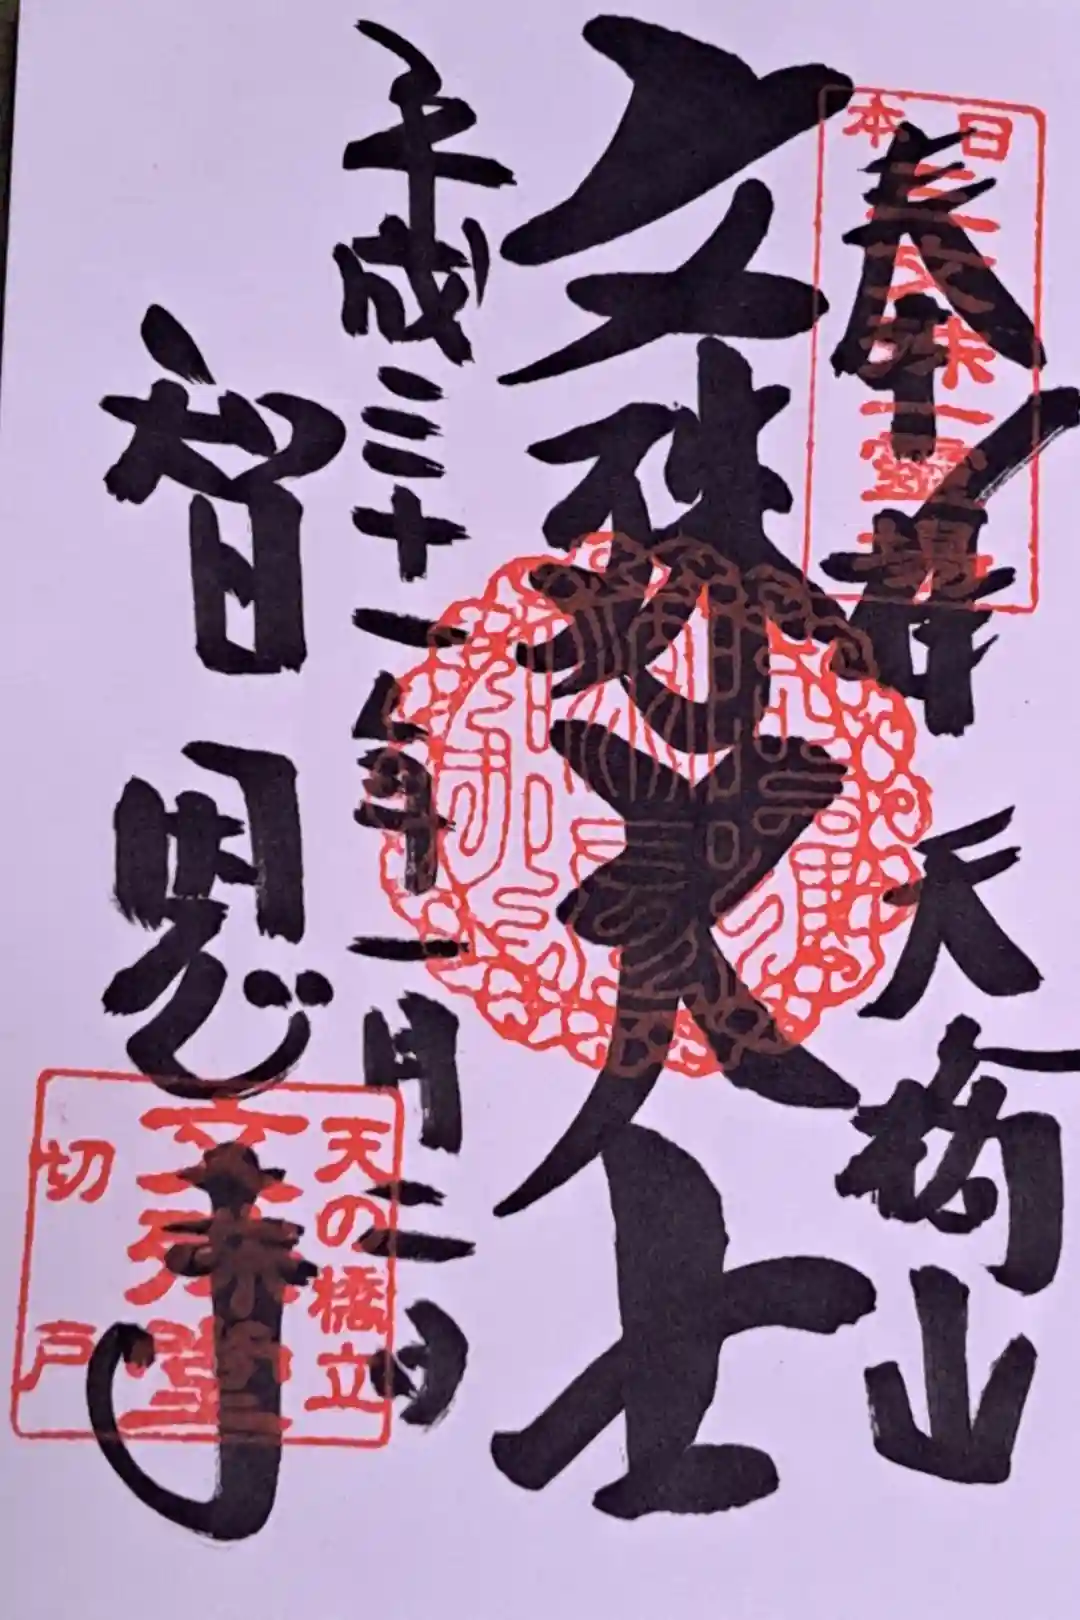 日本
三文殊一霊場
奉拝 天橋山
文殊大士
平成三十一年一月二日
智恩寺
天の橋立
文殊堂
切戸